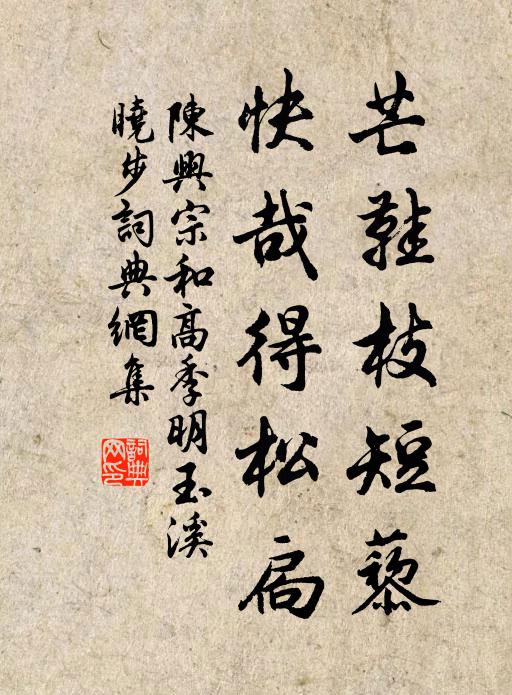 芒鞋枝短藜
快哉得松扃
陳興宗和高季明玉溪
曉步詞典網集
詞典網印